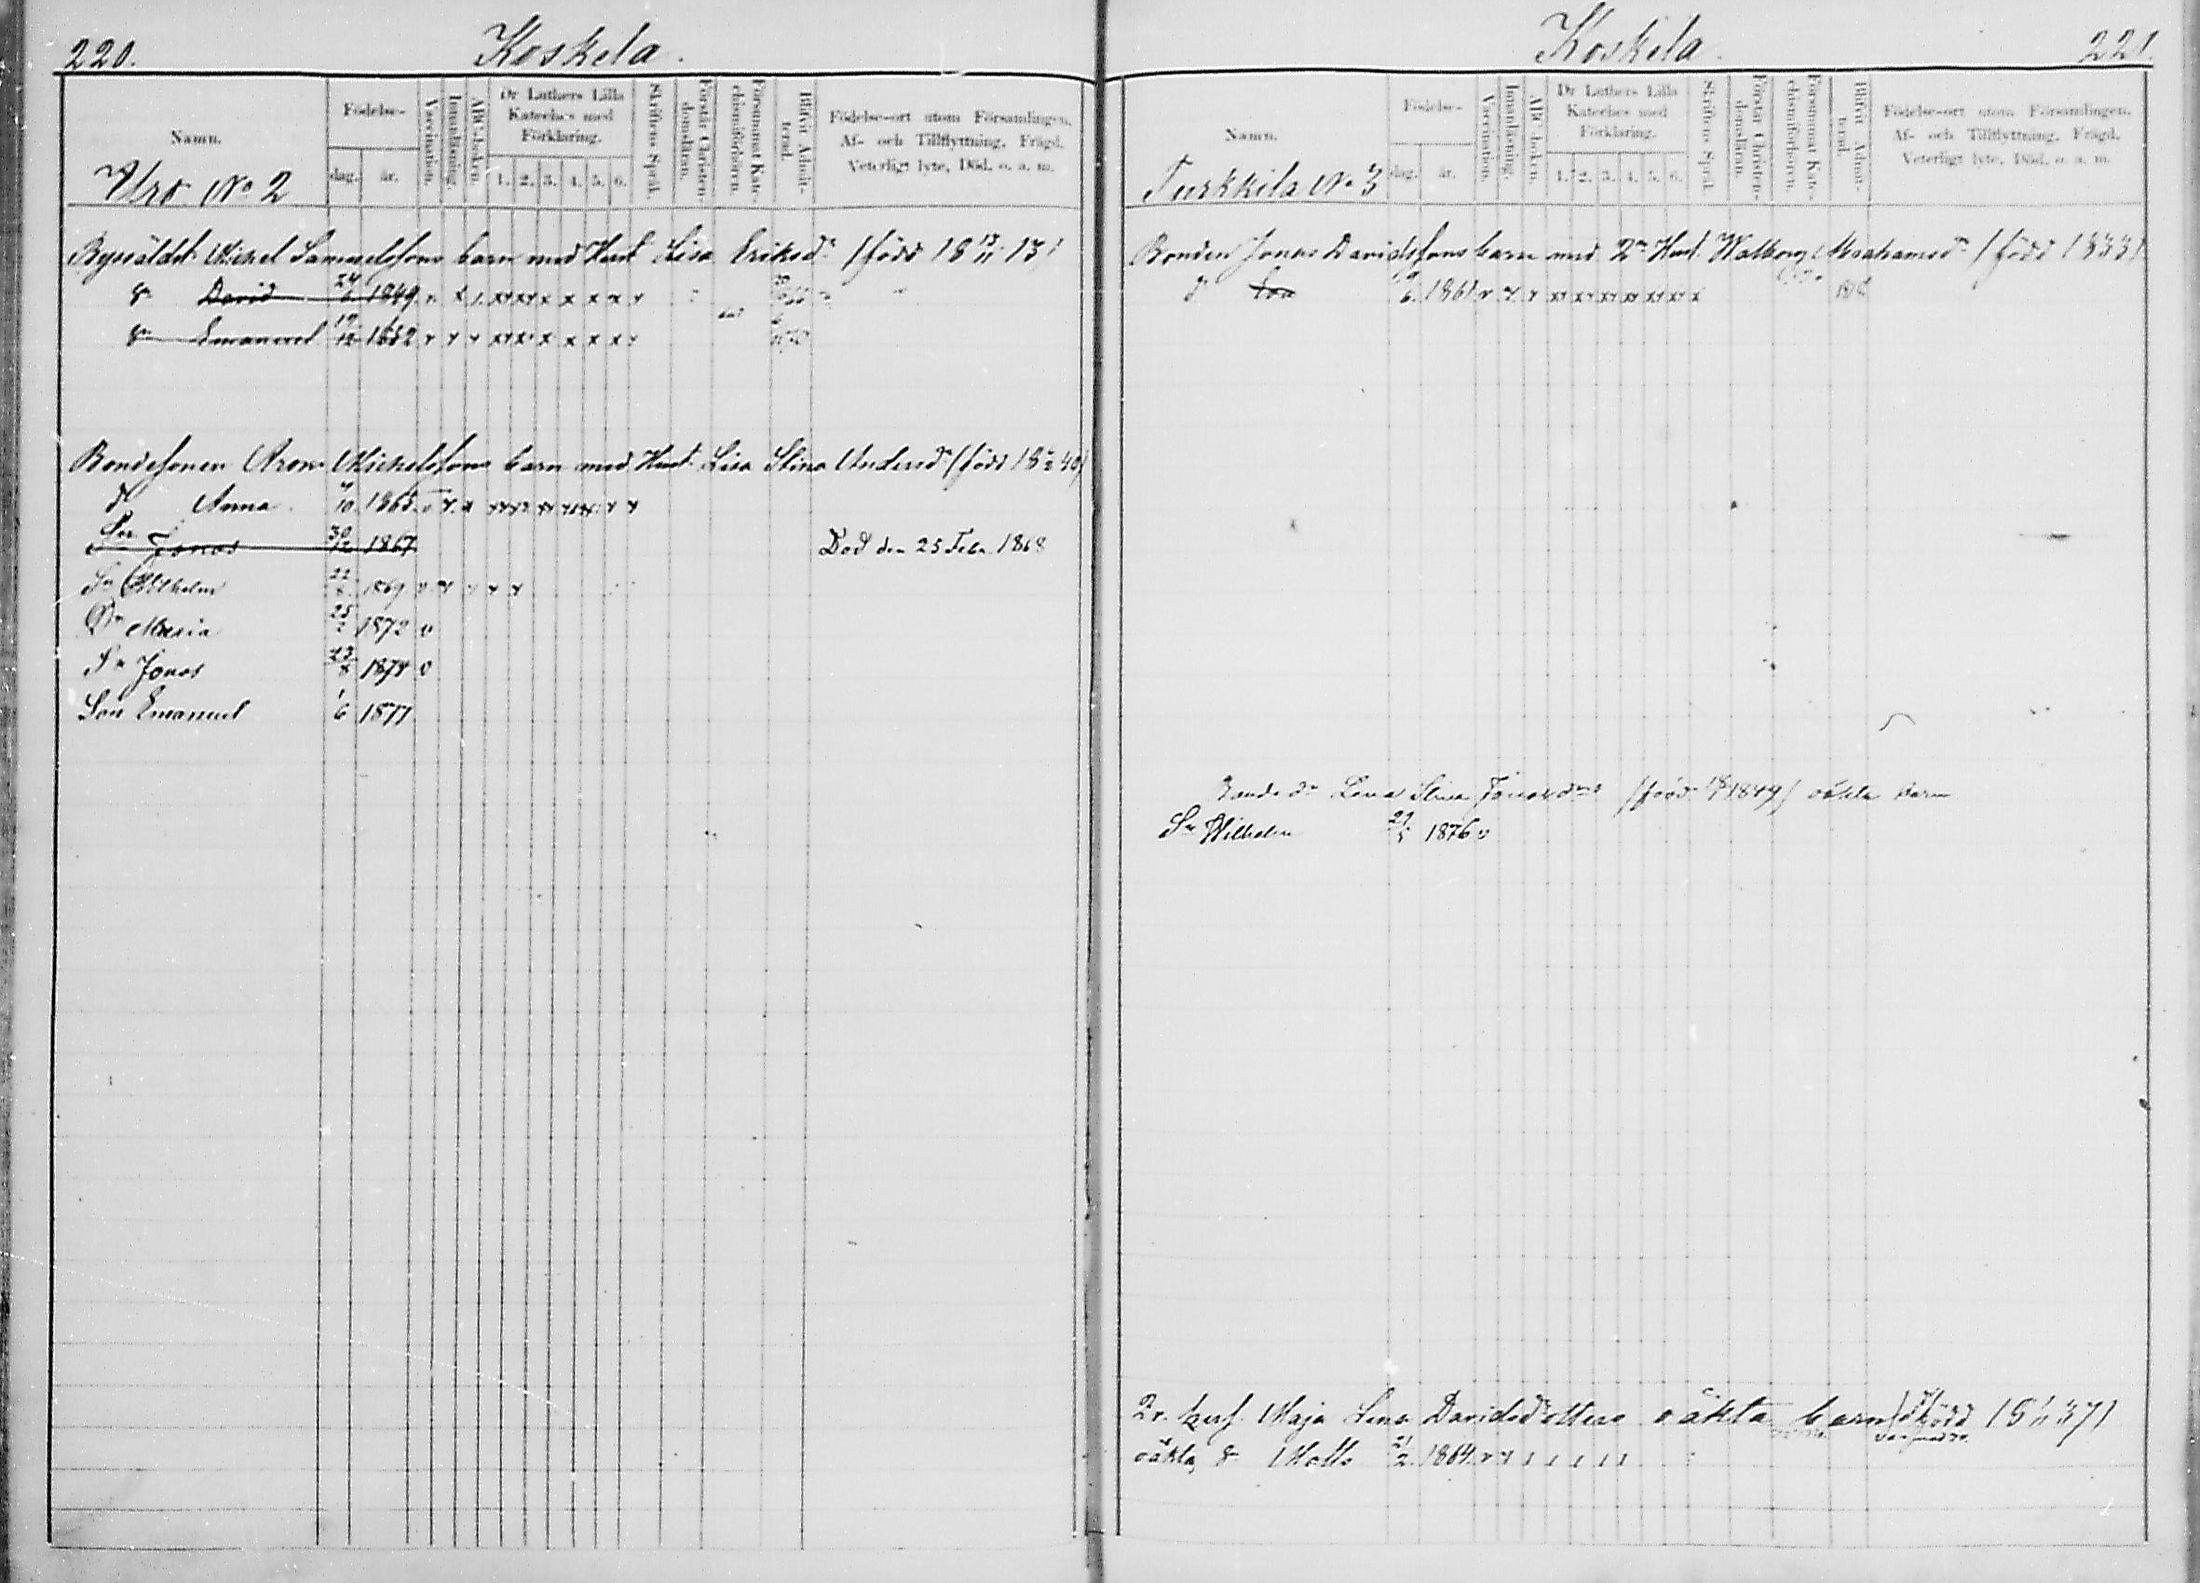 220. Koskela.
Namn.
Födelse-
dag. år.
Vaccination.
Innanläsning.
ABC-boken.
Dr Luthers Lilla Kateches med Förklaring.
1. 2. 3. 4. 5. 6.
Skriftens Språk.
Förstår Christendomsläran.
Försummat Katechismiförhören.
Blifvit Admitterad.
Födelse-ort utom Församlingen.
Af- och Tillflyttning. Frägd.
Veterligt lyte, Död, o. a. m.
Uro No 2
Michel Samuelssons barn med Hust Lisa Eriksdr (född 18 13/11 13)
Sn David 24/6 1849
Sn Emanuel 19/12 1852
Bondesonen Aron Michelssons barn med Hust. Lisa Stina Andersdr (född 18 40)
dr Anna 10 1865
Sn Jonas 30/12 1867 Död den 25 Febr. 1868
Sn Wilhelm 22/8 1869 v
Dr Maria 25/2 1872 v
Sn Jonas 23/8 1874 v
Son Emanuel 1/6 1877
Koskela. 221.
Namn.
Födelse-
dag. år.
Vaccination.
Innanläsning.
ABC-boken.
Dr Luthers Lilla Kateches med Förklaring.
1. 2. 3. 4. 5. 6.
Skriftens Språk.
Förstår Christendomsläran.
Försummat Katechismiförhören.
Blifvit Admitterad.
Födelse-ort utom Församlingen.
Af- och Tillflyttning. Frägd.
Veterligt lyte, Död, o. a. m.
Turkkila No 3
Bonden Jonas Davidssons barn med 2n Hust. Walborg Abrahamsdr (född 1833)
dr 6 1861
Bonde dr Lena Stina Jonasdrs (född 1849) oäkta barn
Sn Wilhelm 21/5 1876 v
Maja Lena Davidsdotters oäkta barn född 18 1/11 37)
oäkta Sn Matts 21/2 1864